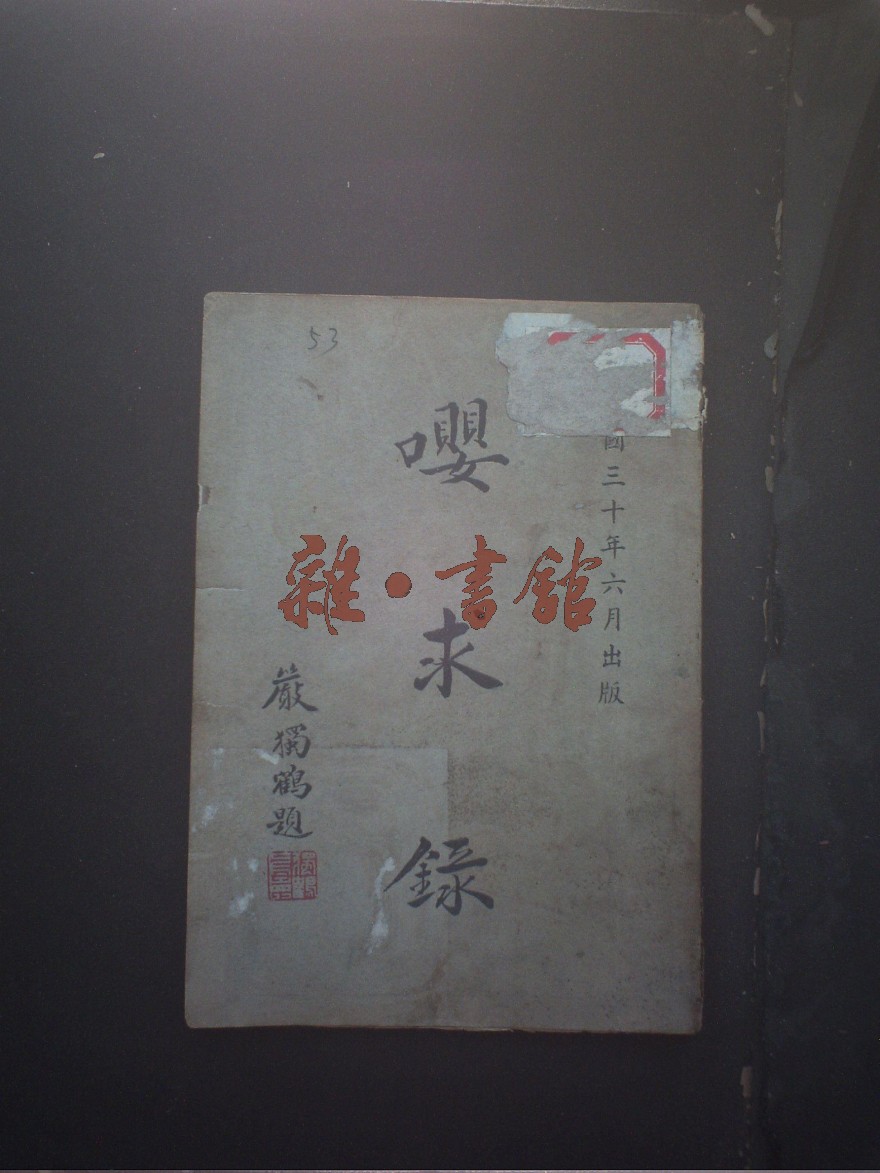 53
國三十年六月出版
嚶求錄
嚴獨鶴題
雜·書館